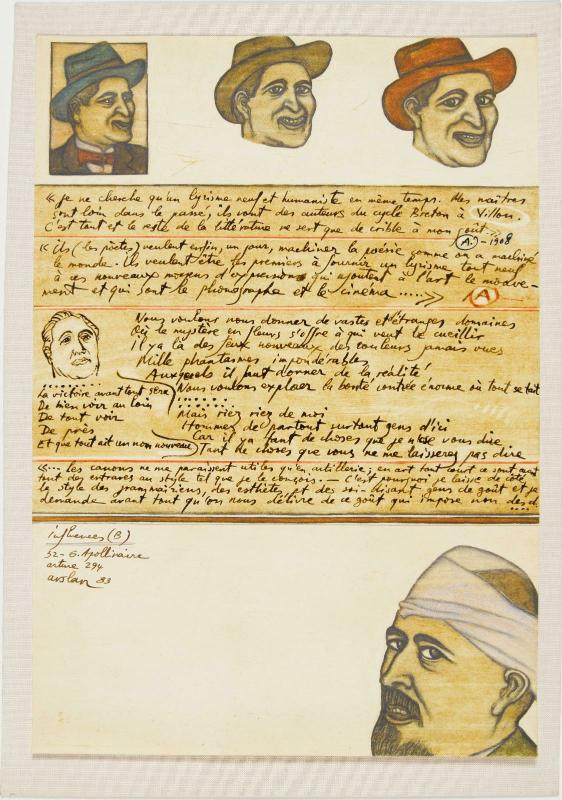 « Je ne cherche qu'un lyrisme neuf et humaniste en même temps. Mes maîtres
sont loin dans le passé, ils vont des auteurs du cycle Breton à Villon.
C'est tout et le reste de la littérature ne sert que de crible à mon goût..
(A.) - 1908
« ils (les poètes) veulent enfin, un jour, machiner la poésie comme on a machiné
le monde. ils veulent être les premiers à fournir un lyrisme tout neuf
à ces nouveaux moyens d'expression qui ajoutent à l'art le mouve-
ment et qui sont le phonographe et le cinéma ......
A
Nous voulons nous donner de vastes et étranges domaines
Où le mystère en fleurs s'offre à qui veut le cueillir
il y a là des feux nouveaux des couleurs jamais vues
Mille phantasmes impondérables
Auxquels il faut donner de la réalité
Nous voulons explorer la bonté contrée énorme où tout se tait
........
La victoire avant tout sera
De bien voir au loin
De tout voir
De près
Et que tout ait un nom nouveau
........
Mais riez riez de moi
Hommes de partout surtout gens d'ici
Car il y a tant de choses que je n'ose vous dire
Tant de choses que vous ne me laisserez pas dire
«... les canons ne me paraissent utiles qu'en artillerie; en art tout court ce sont avant
tout des entraves au style tel que je le conçois. — C'est pourquoi je laisse de côté
le style des grammairiens, des esthètes et des soi-disant gens de goût et je
demande avant tout qu'on nous délivre de ce goût qui impose non des d.
....
influences (B)
52- G. Apollinaire
arture 294
arslan 83